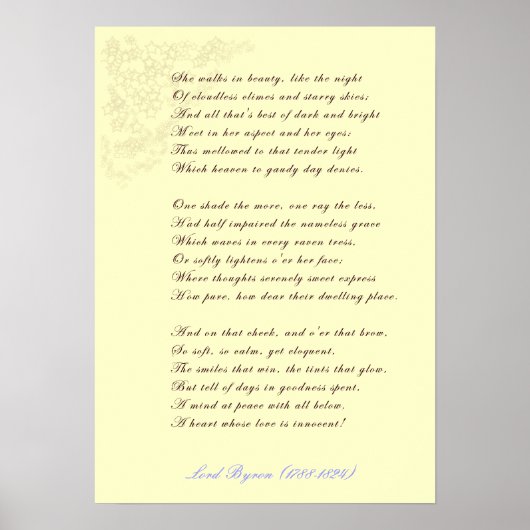 She walks in beauty, like the night
Of cloudless climes and starry skies;
And all that's best of dark and bright
Meet in her aspect and her eyes:
Thus mellowed to that tender light
Which heaven to gaudy day denies.
One shade the more, one ray the less,
Had half impaired the nameless grace
Which waves in every raven tress,
Or softly lightens o'er her face;
Where thoughts serenely sweet express
How pure, how dear their dwelling place.
And on that cheek, and o'er that brow,
So soft, so calm, yet eloquent,
The smiles that win, the tints that glow,
But tell of days in goodness spent,
A mind at peace with all below,
A heart whose love is innocent!
Lord Byron (1788-1824)